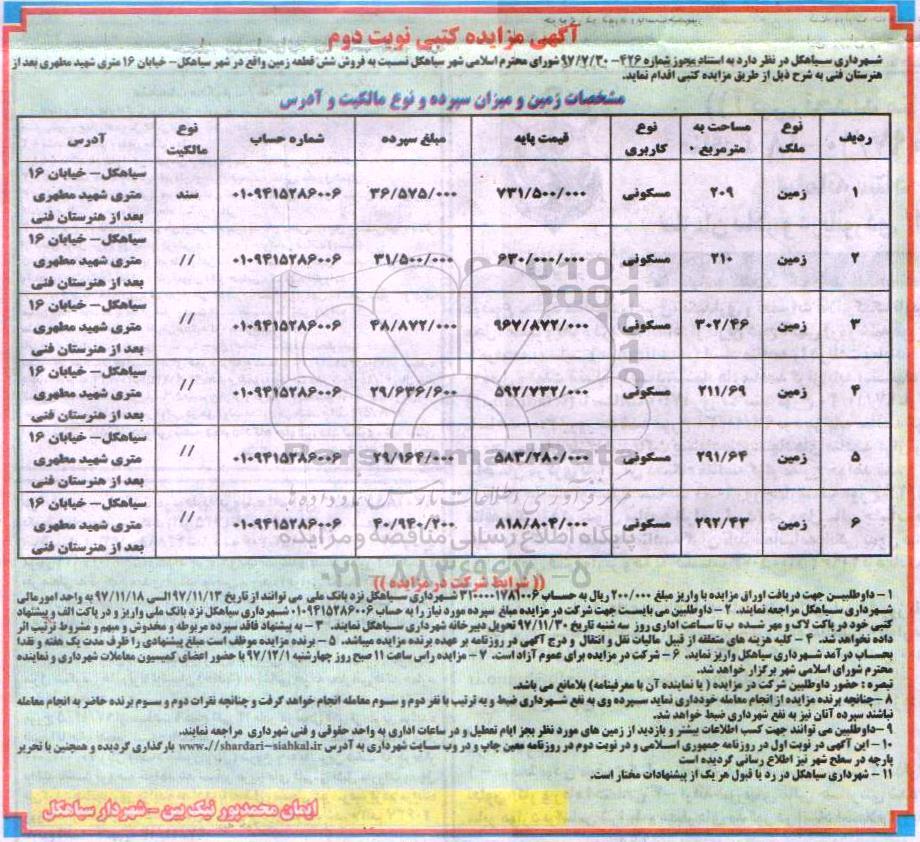 آگهی مزایده کتبی نوبت دوم
شهرداری سیاهکل در نظر دارد به استناد مجوز شماره ۴۲۶- ۹۷/۷/۳۰ شورای محترم اسلامی شهر سیاهکل نسبت به فروش شش قطعه زمین واقع در شهر سیاهکل- خیابان ۱۶ متری شهید مطهری بعد از
هنرستان فنی به شرح ذیل از طریق مزایده کتبی اقدام نماید.
مشخصات زمین و میزان سپرده و نوع مالکیت و آدرس
ردیف نوع ملک مساحت به مترمربع نوع کاربری قیمت پایه مبلغ سپرده شماره حساب نوع مالکیت آدرس
۱ زمین ۲۰۹ مسکونی ۷۳۱/۵۰۰/۰۰۰ ۳۶/۵۷۵/۰۰۰ ۰۱۰۹۴۱۵۲۸۶۰۰۶ سند سیاهکل- خیابان ۱۶ متری شهید مطهری بعد از هنرستان فنی
۲ زمین ۲۱۰ مسکونی ۶۳۰/۰۰۰/۰۰۰ ۳۱/۵۰۰/۰۰۰ ۰۱۰۹۴۱۵۲۸۶۰۰۶ // سیاهکل- خیابان ۱۶ متری شهید مطهری بعد از هنرستان فنی
۳ زمین ۳۰۲/۴۶ مسکونی ۹۶۷/۸۷۲/۰۰۰ ۴۸/۸۷۲/۰۰۰ ۰۱۰۹۴۱۵۲۸۶۰۰۶ // سیاهکل- خیابان ۱۶ متری شهید مطهری بعد از هنرستان فنی
۴ زمین ۲۱۱/۶۹ مسکونی ۵۹۲/۷۳۲/۰۰۰ ۲۹/۶۳۶/۶۰۰ ۰۱۰۹۴۱۵۲۸۶۰۰۶ // سیاهکل- خیابان ۱۶ متری شهید مطهری بعد از هنرستان فنی
۵ زمین ۲۹۱/۶۴ مسکونی ۵۸۳/۲۸۰/۰۰۰ ۲۹/۱۶۴/۰۰۰ ۰۱۰۹۴۱۵۲۸۶۰۰۶ // سیاهکل- خیابان ۱۶ متری شهید مطهری بعد از هنرستان فنی
۶ زمین ۲۹۲/۴۳ مسکونی ۸۱۸/۸۰۴/۰۰۰ ۴۰/۹۴۰/۲۰۰ ۰۱۰۹۴۱۵۲۸۶۰۰۶ // سیاهکل- خیابان ۱۶ متری شهید مطهری بعد از هنرستان فنی
ParsNamadData
پایگاه اطلاع رسانی مناقصه و مزایده
۰۲۱-۸۸۳۴۹۶۷۰-۵
(( شرایط شرکت در مزایده ))
۱ - داوطلبین جهت دریافت اوراق مزایده با واریز مبلغ ۲۰۰/۰۰۰ ریال به حساب ۳۱۰۰۰۰۱۷۸۱۰۰۶ شهرداری سیاهکل نزد بانک ملی می توانند از تاریخ ۹۷/۱۱/۱۳ الی ۹۷/۱۱/۱۸ به واحد امور مالی
شهرداری سیاهکل مراجعه نمایند. ۲ - داوطلبین می بایست جهت شرکت در مزایده مبلغ سپرده مورد نیاز را به حساب ۰۱۰۹۴۱۵۲۸۶۰۰۶ شهرداری سیاهکل نزد بانک ملی واریز و در پاکت الف و پیشنهاد
کتبی خود در پاکت لاک و مهر شده ب تا ساعت اداری روز سه شنبه تاریخ ۹۷/۱۱/۳۰ تحویل دبیرخانه شهرداری سیاهکل نمایند. ۳ - به پیشنهاد فاقد سپرده مربوطه و مخدوش و مبهم و مشروط ترتیب اثر
داده نخواهد شد. ۴ - کلیه هزینه های متعلقه از قبیل مالیات نقل و انتقال و درج آگهی در روزنامه بر عهده برنده مزایده میباشد. ۵ - برنده مزایده موظف است مبلغ پیشنهادی را ظرف مدت یک هفته و نقدا
بحساب درآمد شهرداری سیاهکل واریز نماید. ۶ - شرکت در مزایده برای عموم آزاد است. ۷ - مزایده راس ساعت ۱۱ صبح روز چهارشنبه ۹۷/۱۲/۱ با حضور اعضای کمیسیون معاملات شهرداری و نماینده
محترم شورای اسلامی شهر برگزار خواهد شد.
تبصره : حضور داوطلبین شرکت در مزایده ( یا نماینده آن با معرفینامه) بلامانع می باشد.
۸ -چنانچه برنده مزایده از انجام معامله خودداری نماید سپرده وی به نفع شهرداری ضبط و به ترتیب با نفر دوم و سوم معامله انجام خواهد گرفت و چنانچه نفرات دوم و سوم برنده حاضر به انجام معامله
نباشند سپرده آنان نیز به نفع شهرداری ضبط خواهد شد.
۹ -داوطلبین می توانند جهت کسب اطلاعات بیشتر و بازدید از زمین های مورد نظر بجز ایام تعطیل و در ساعات اداری به واحد حقوقی و فنی شهرداری مراجعه نمایند.
۱۰ - این آگهی در نوبت اول در روزنامه جمهوری اسلامی و در نوبت دوم در روزنامه معین چاپ و در وب سایت شهرداری به آدرس www.//shardari-siahkal.ir بارگذاری گردیده و همچنین با تحریر
پارچه در سطح شهر نیز اطلاع رسانی گردیده است
۱۱ - شهرداری سیاهکل در رد یا قبول هر یک از پیشنهادات مختار است.
ایمان محمدپور نیک بین -شهردار سیاهکل